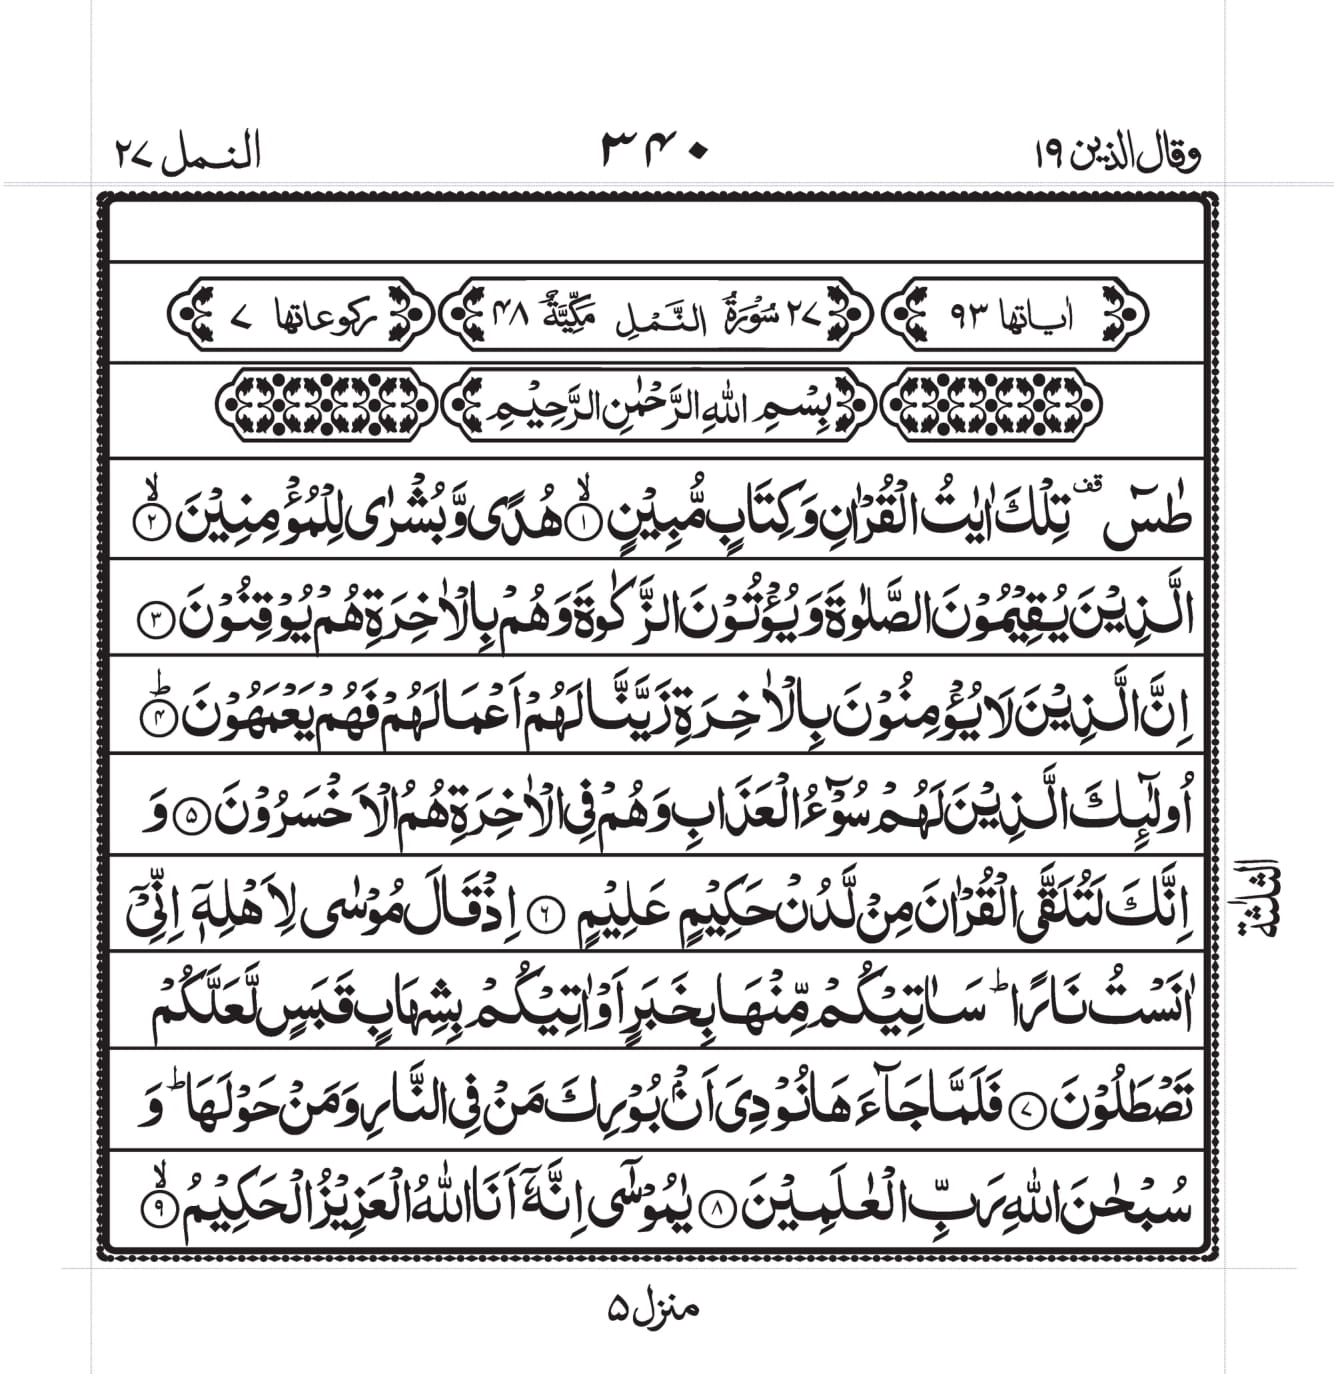 وقال الذين ۱۹
۳۴۰
النمل ۲۷
اٰیاتها ۹۳
۲۷ سُوْرَةُ النَّمْلِ مَکِّیَّةٌ ۴۸
رکوعاتها ۷
بِسْمِ اللّٰهِ الرَّحْمٰنِ الرَّحِیْمِ
طٰسٓ ۟قف تِلْكَ اٰیٰتُ الْقُرْاٰنِ وَكِتَابٍ مُّبِیْنٍ ۙ﴿۱﴾ هُدًی وَّبُشْرٰی لِلْمُؤْمِنِیْنَ ۙ﴿۲﴾
الَّذِیْنَ یُقِیْمُوْنَ الصَّلٰوةَ وَیُؤْتُوْنَ الزَّكٰوةَ وَهُمْ بِالْاٰخِرَةِ هُمْ یُوْقِنُوْنَ ﴿۳﴾
اِنَّ الَّذِیْنَ لَا یُؤْمِنُوْنَ بِالْاٰخِرَةِ زَیَّنَّا لَهُمْ اَعْمَالَهُمْ فَهُمْ یَعْمَهُوْنَ ؕ﴿۴﴾
اُولٰٓئِكَ الَّذِیْنَ لَهُمْ سُوْٓءُ الْعَذَابِ وَهُمْ فِی الْاٰخِرَةِ هُمُ الْاَخْسَرُوْنَ ﴿۵﴾ وَ
اِنَّكَ لَتُلَقَّی الْقُرْاٰنَ مِنْ لَّدُنْ حَكِیْمٍ عَلِیْمٍ ﴿۶﴾ اِذْ قَالَ مُوْسٰی لِاَهْلِهٖۤ اِنِّیْۤ
اٰنَسْتُ نَارًا ؕ سَاٰتِیْكُمْ مِّنْهَا بِخَبَرٍ اَوْ اٰتِیْكُمْ بِشِهَابٍ قَبَسٍ لَّعَلَّكُمْ
تَصْطَلُوْنَ ﴿۷﴾ فَلَمَّا جَآءَهَا نُوْدِیَ اَنْۢ بُوْرِكَ مَنْ فِی النَّارِ وَمَنْ حَوْلَهَا ؕ وَ
سُبْحٰنَ اللّٰهِ رَبِّ الْعٰلَمِیْنَ ﴿۸﴾ یٰمُوْسٰۤی اِنَّهٗۤ اَنَا اللّٰهُ الْعَزِیْزُ الْحَكِیْمُ ۙ﴿۹﴾
الثلثة
منزل ۵